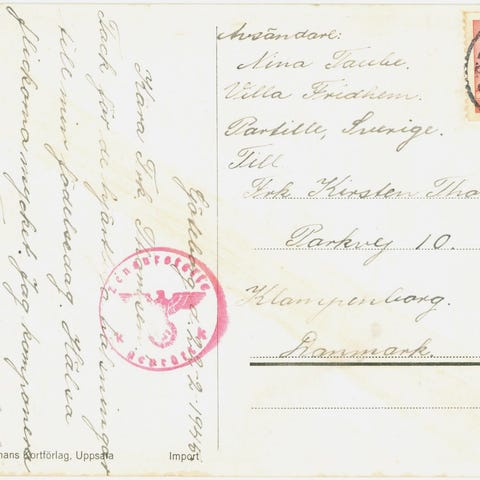 Avsändare:
Nina Taube.
Villa Fridhem.
Partille, Sverige.
Till
Frk Kirsten Tho
Parkvej 10.
Klampenborg.
Danmark
Göteborg 2 1943
Kära Frk.
Tack för de hjärtliga
till min födelsedag. Hälsa
flickorna mycket. Jag komponera
Zensurstelle
Geprüft
Kortförlag, Uppsala
Import